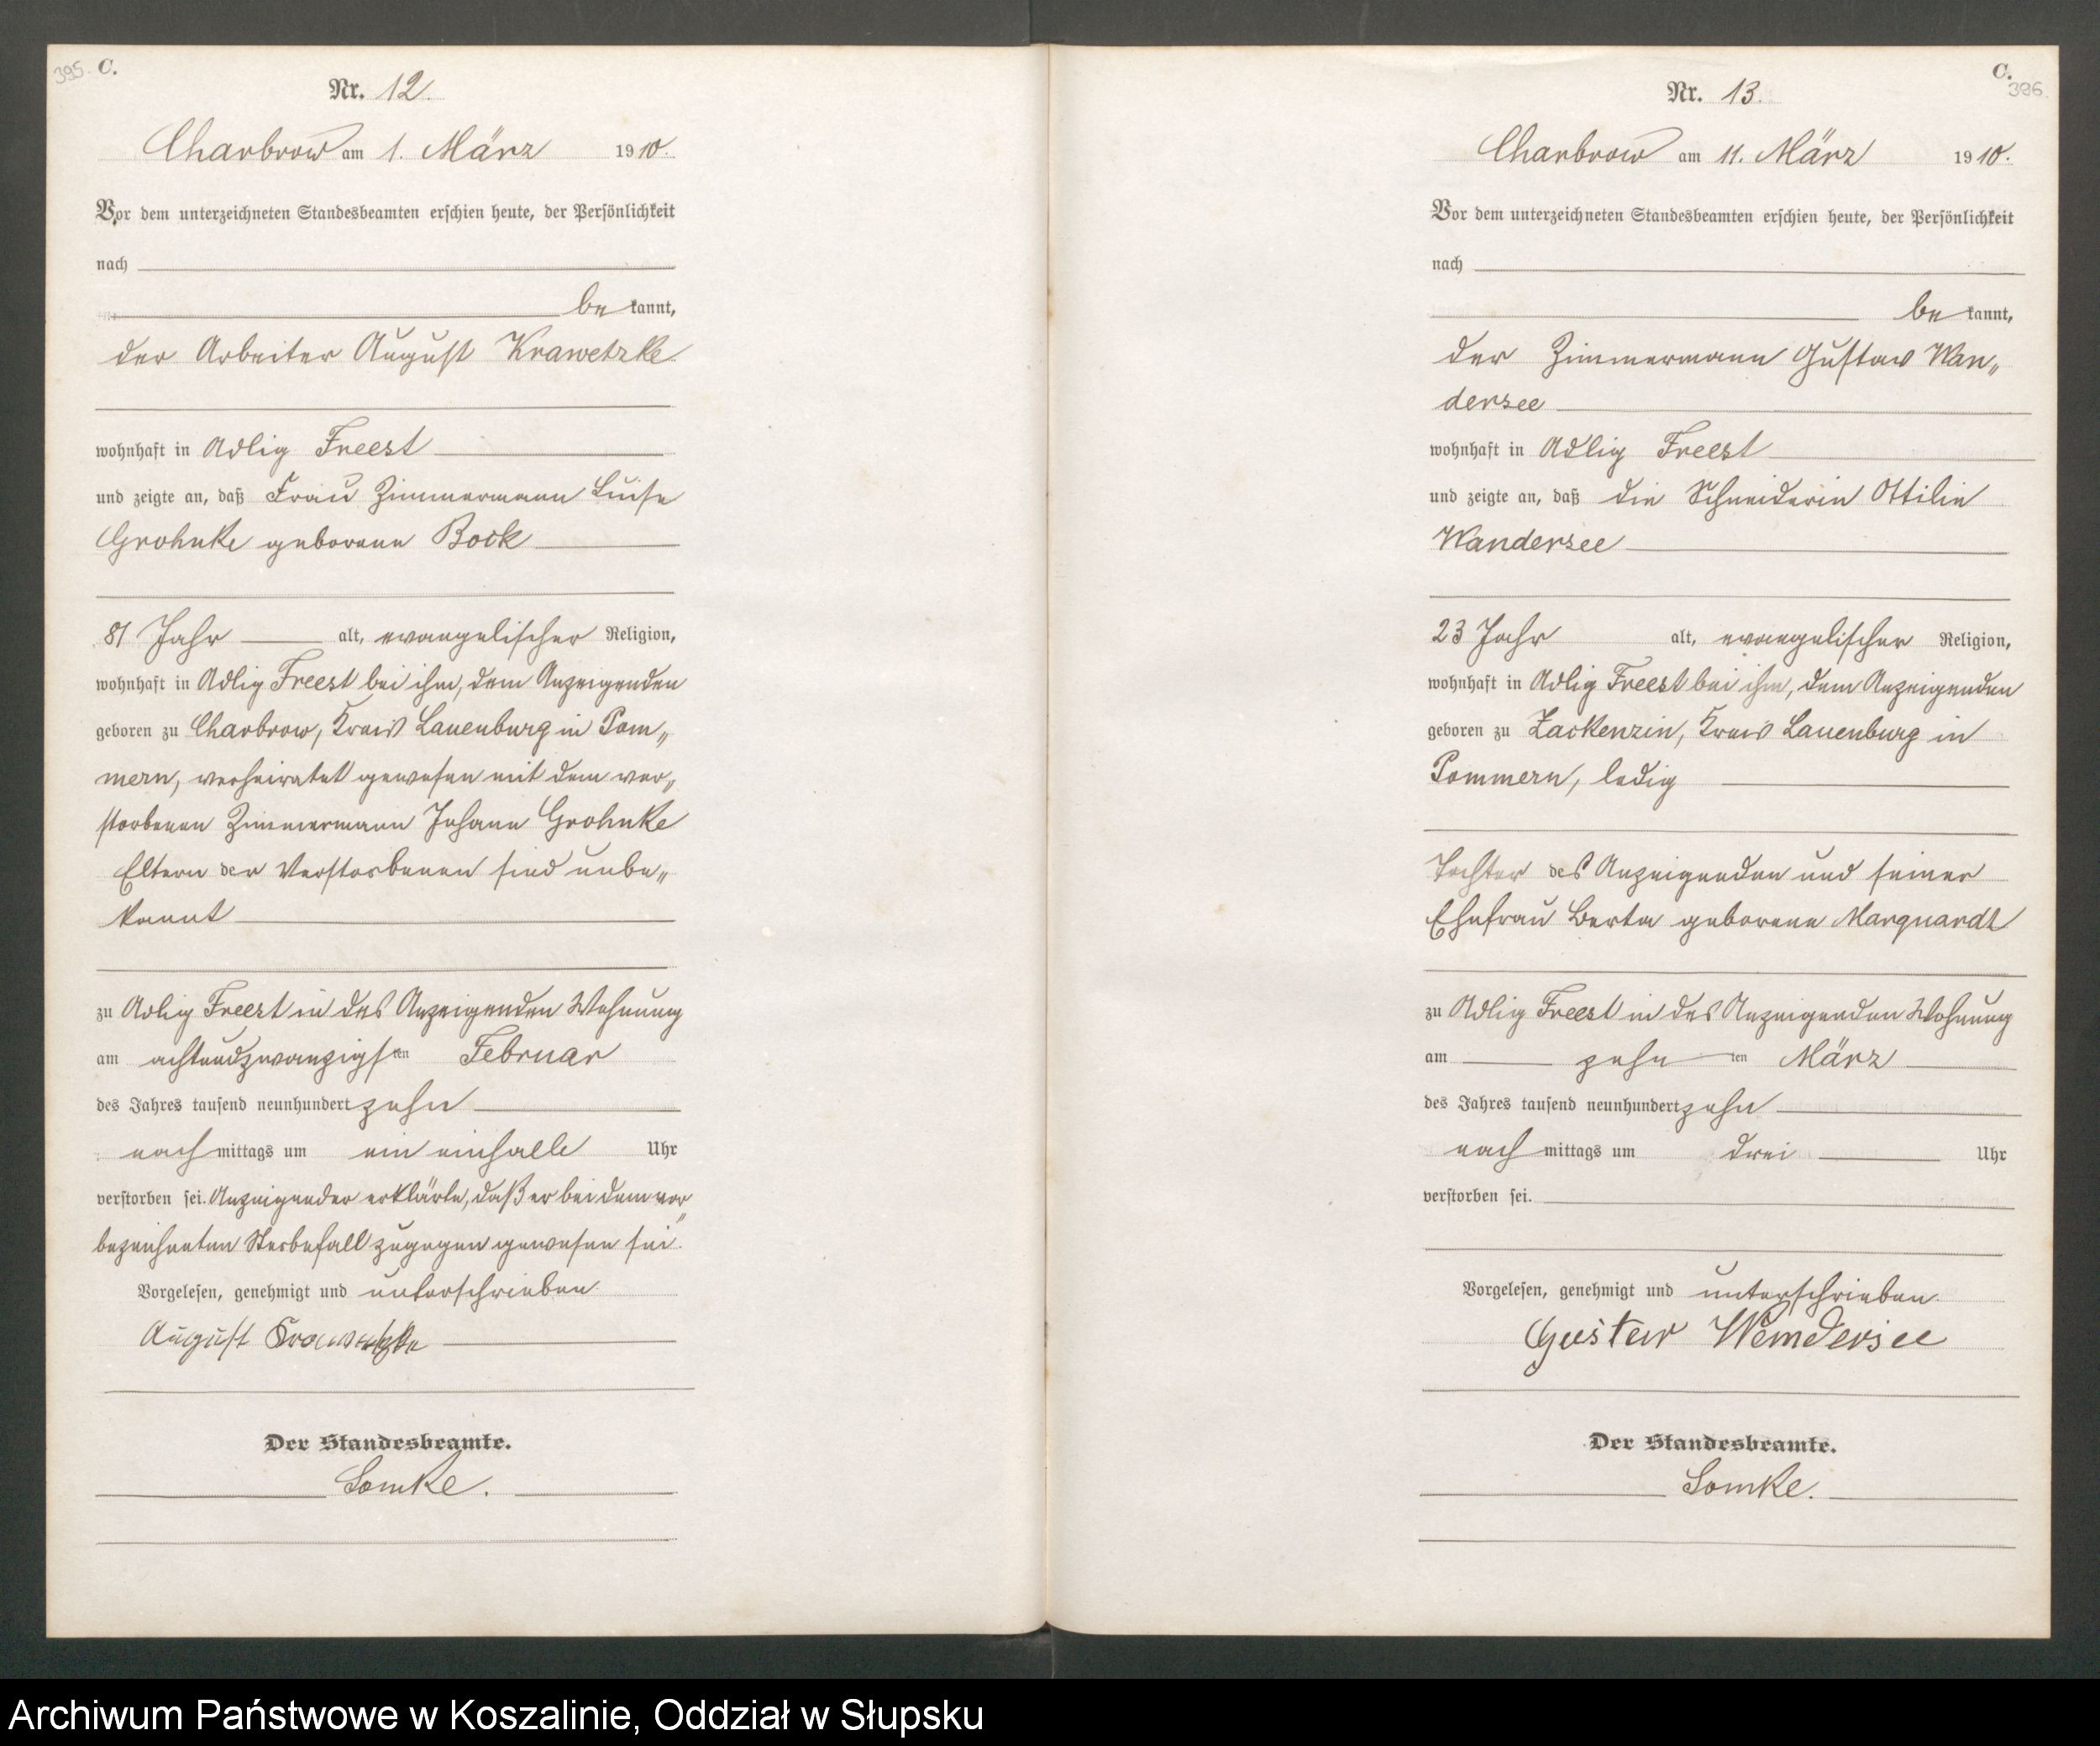 395. C.
Nr. 12.
Charbrow am 1. März 1910.
Vor dem unterzeichneten Standesbeamten erschien heute, der Persönlichkeit
nach
be kannt,
der Arbeiter August Krawetzke
wohnhaft in Adlig Freest
und zeigte an, daß Frau Zimmermann Luise
Grohnke geborene Bock
81 Jahr alt, evangelischer Religion,
wohnhaft in Adlig Freest bei ihm, dem Anzeigenden
geboren zu Charbrow, Kreis Lauenburg in Pom„
mern, verheiratet gewesen mit dem ver„
storbenen Zimmermann Johann Grohnke
Eltern der Verstorbenen sind unbe„
kannt
zu Adlig Freest in des Anzeigenden Wohnung
am achtundzwanzigsten Februar
des Jahres tausend neunhundert zehn
nach mittags um ein einhalb Uhr
verstorben sei. Anzeigender erklärte, daß er bei dem vor„
bezeichneten Sterbefall zugegen gewesen sei.
Vorgelesen, genehmigt und unterschrieben
August Krawetzke
Der Standesbeamte.
Lomke.
C. 396
Nr. 13.
Charbrow am 11. März 1910.
Vor dem unterzeichneten Standesbeamten erschien heute, der Persönlichkeit
nach
be kannt,
der Zimmermann Gustav Wan„
dersee
wohnhaft in Adlig Freest
und zeigte an, daß die Schneiderin Ottilie
Wandersee
23 Jahr alt, evangelischer Religion,
wohnhaft in Adlig Freest bei ihm, dem Anzeigenden
geboren zu Zackenzin, Kreis Lauenburg in
Pommern, ledig
Tochter des Anzeigenden und seiner
Ehefrau Berta geborene Marquardt
zu Adlig Freest in des Anzeigenden Wohnung
am zehn ten März
des Jahres tausend neunhundert zehn
nach mittags um drei Uhr
verstorben sei.
Vorgelesen, genehmigt und unterschrieben
Gustav Wandersee
Der Standesbeamte.
Lomke.
Archiwum Państwowe w Koszalinie, Oddział w Słupsku